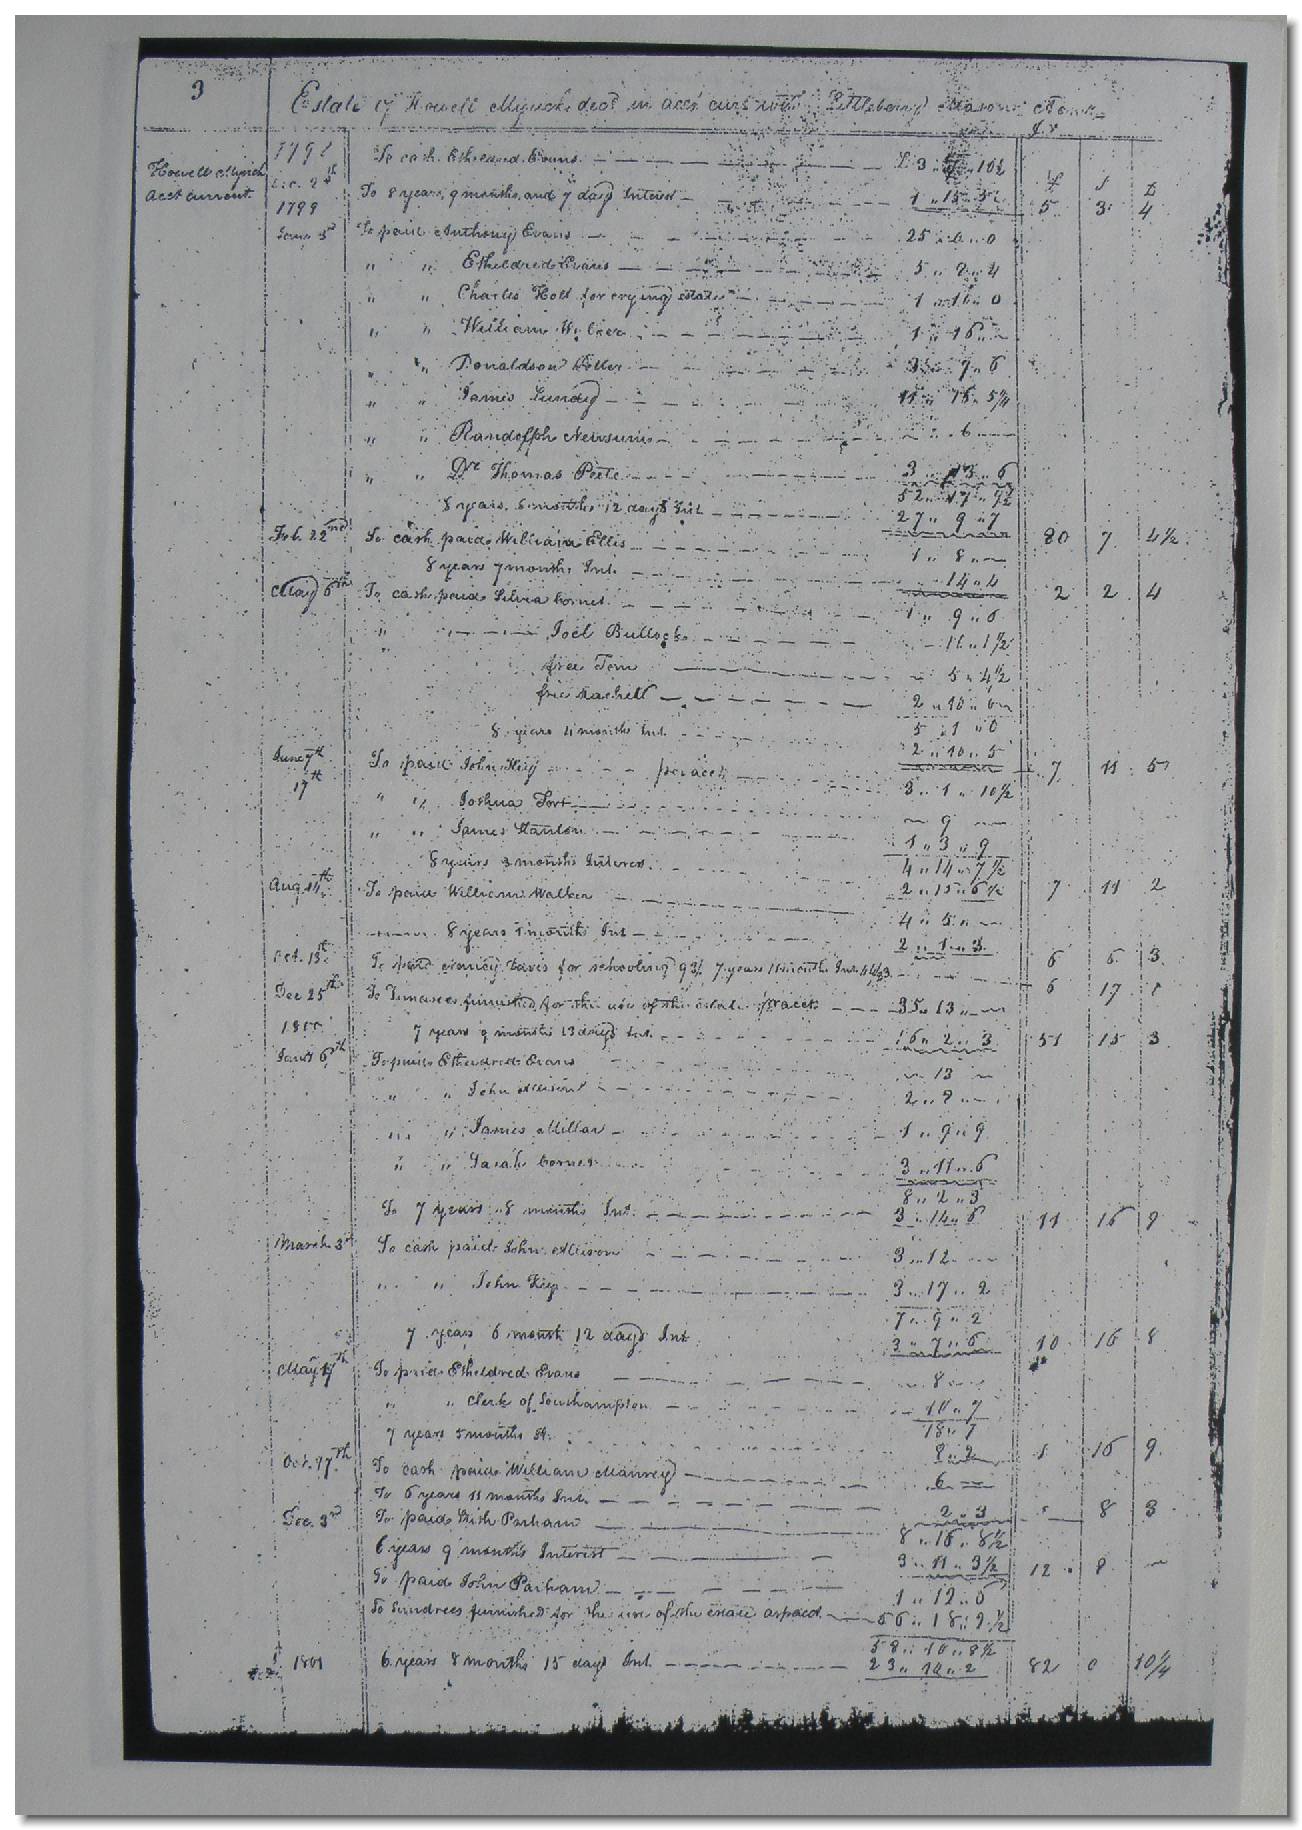 3
Estate of Howell Myrick decd in acct curt with Littleberry Mason Admr
Howell Myrick
acct current
179
Dec. 2 th To cash Etheldred Evans £ 3 10½ £ S D
To 8 years, 9 months, and 7 days Interest 1 " 15 " 5 5 3 4
1799
Jany 3d To paid Anthony Evans 25 " 0 " 0
" " Etheldred Evans 5 " 2 " 4
" " Charles Holt for crying estate 1 " 16 " 0
" " William 1 " 16 "
" " Donaldson Potter 3 " 9 " 6
" " James Lundy 11 " 15 " 5¼
" " Randolph Newsum " 6
" " Dr Thomas Peete 3 " 13 " 6
52 " 17 " 9½
8 years, 8 months 12 days Int 27 " 9 " 7 80 7 4½
Feb. 22nd To cash paid William Ellis 1 " 8 "
8 years 7 months Int. 14 " 4 2 2 4
May 6th To cash paid Silvia 1 " 9 " 6
" Joel Bullock 16 " 1½
free Tom 5 " 4½
free Rachell 2 " 10 " 0
5 " 1 " 0
8 years 4 months Int. 2 " 10 " 5 7 11 5
June 7th To paid John Key per acct 3 " 1 " 10½
17th " " Joshua Fort 9
" " James Stanton 1 " 3 " 9
4 " 14 " 7½
8 years 3 months Interest. 2 " 15 " 6½ 7 11 2
Aug. 14th To paid William Walker 4 " 5 "
8 years 1 months Int 2 " 1 " 3 6 6 3
Oct. 13th To paid Davis for schooling 7 years 11 months Int. 6 17 1
Dec 25th To furnished for the use of the estate pr acct 35 " 13 "
7 years 9 months 13 days Int. 16 " 2 " 3 51 15 3
1800
Jany 6th To paid Etheldred Evans 13
" " John Allison 2 " 8 "
" " James Millar 1 " 9 " 9
" " Sarah 3 " 11 " 6
8 " 2 " 3
To 7 years 8 months Int. 3 " 14 " 6 11 16 9
March 3d To cash paid John Allison 3 " 12
" " John Key 3 " 17 " 2
7 " 9 " 2
7 years 6 month 12 days Int 3 " 7 " 6 10 16 8
May 17th To paid Etheldred Evans 8
" " clerk of Southampton 10 " 7
18 " 7
7 years 5 months 8 " 2 1 16 9
Oct. 17th To cash paid William 6
To 6 years 11 months Int. 2 " 3 8 3
Dec. 3rd To paid Parham 8 " 16 " 8½
6 years 9 months Interest 3 " 11 " 3½ 12 8
To paid John Parham 1 " 12 " 6
To Sundrees furnished for the use of the estate as paid 56 " 18 " 2½
58 " 10 " 8½
1801 6 years 8 months 15 days Int. 23 " 10 " 2 82 0 10¼